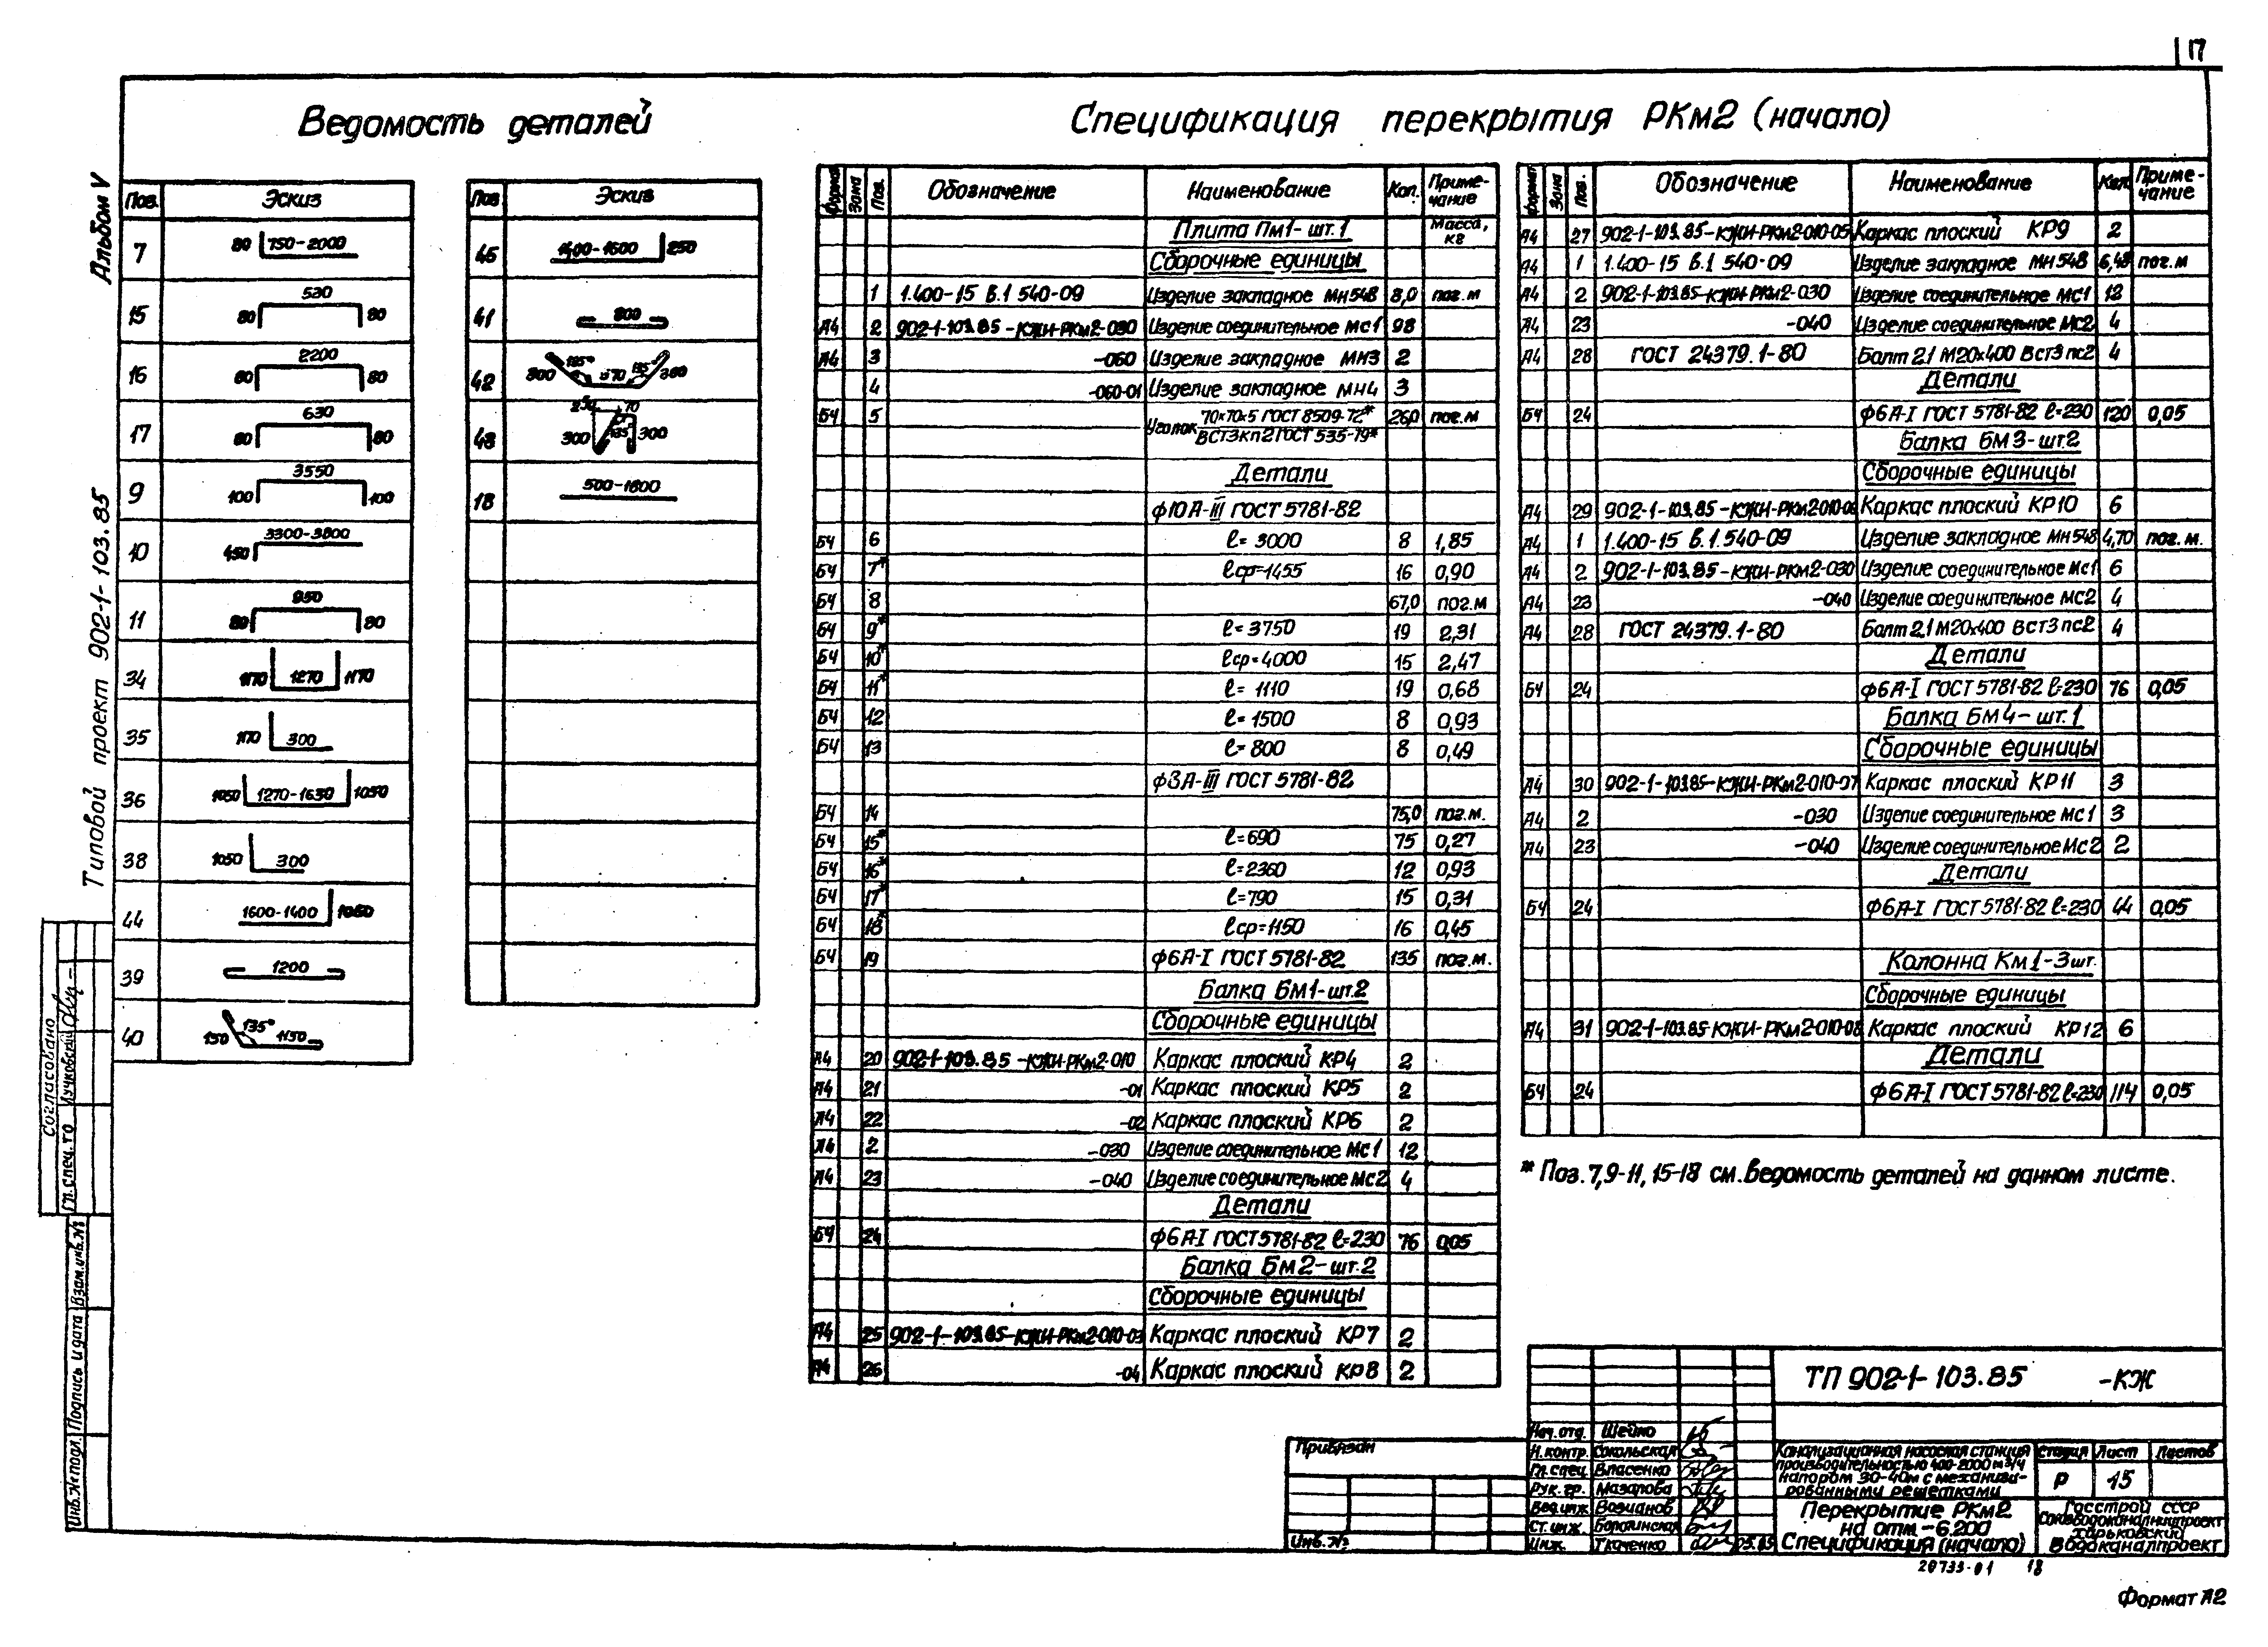 17
Ведомость деталей
Спецификация перекрытия РКм2 (начало)
Альбом V
Типовой проект 902-1-103.85
Поз. Эскиз
7 80 750-2000
15 80 530 80
16 80 2200 80
17 80 630 80
9 100 3550 100
10 450 3300-3800
11 80 950 80
34 1170 1270 1170
35 1170 300
36 1050 1270-1630 1050
38 1050 300
44 1600-1400 1050
39 1200
40 150 135° 1150
Поз Эскиз
45 1400-1600 250
41 800
42 300 135° 570 135 300
43 250 70 300 135 300
18 500-1800
Формат Зона Поз. Обозначение Наименование Кол. Примечание
Плита Пм1-шт.1 Масса, кг
Сборочные единицы
1 1.400-15 В.1 540-09 Изделие закладное МН548 8,0 пог.м
А4 2 902-1-103.85-КЖИ-РКм2-030 Изделие соединительное Мс1 98
А4 3 -060 Изделие закладное МН3 2
4 -060-01 Изделие закладное МН4 3
БЧ 5 Уголок 70х70х5 ГОСТ 8509-72* 26,0 пог.м
ВСТ3кп2 ГОСТ 535-79*
Детали
ф10А-III ГОСТ 5781-82
БЧ 6 ℓ= 3000 8 1,85
БЧ 7* ℓср=1455 16 0,90
БЧ 8 67,0 пог.м
БЧ 9* ℓ=3750 19 2,31
БЧ 10* ℓср=4000 15 2,47
БЧ 11* ℓ= 1110 19 0,68
БЧ 12 ℓ=1500 8 0,93
БЧ 13 ℓ=800 8 0,49
ф8А-III ГОСТ 5781-82
БЧ 14 75,0 пог.м.
БЧ 15* ℓ=690 75 0,27
БЧ 16* ℓ=2360 12 0,93
БЧ 17* ℓ=790 15 0,31
БЧ 18* ℓср=1150 16 0,45
БЧ 19 ф6А-I ГОСТ 5781-82 135 пог.м.
Балка Бм1-шт.2
Сборочные единицы
А4 20 902-1-103.85-КЖИ-РКм2-010 Каркас плоский КР4 2
А4 21 -01 Каркас плоский КР5 2
А4 22 -02 Каркас плоский КР6 2
А4 2 -030 Изделие соединительное Мс1 12
А4 23 -040 Изделие соединительное Мс2 4
Детали
БЧ 24 ф6А-I ГОСТ 5781-82 ℓ=230 76 0,05
Балка Бм2-шт.2
Сборочные единицы
А4 25 902-1-103.85-КЖИ-РКм2-010-03 Каркас плоский КР7 2
А4 26 -04 Каркас плоский КР8 2
Формат Зона Поз. Обозначение Наименование Кол. Примечание
А4 27 902-1-103.85-КЖИ-РКм2-010-05 Каркас плоский КР9 2
А4 1 1.400-15 В.1 540-09 Изделие закладное МН548 6,48 пог.м
А4 2 902-1-103.85-КЖИ-РКм2-030 Изделие соединительное МС1 12
А4 23 -040 Изделие соединительное МС2 4
А4 28 ГОСТ 24379.1-80 Болт 2.1 М20х400 ВСт3пс2 4
Детали
БЧ 24 ф6А-I ГОСТ 5781-82 ℓ=230 120 0,05
Балка БМ3-шт.2
Сборочные единицы
А4 29 902-1-103.85-КЖИ-РКм2-010-06 Каркас плоский КР10 6
А4 1 1.400-15 В.1.540-09 Изделие закладное МН548 4,70 пог.м.
А4 2 902-1-103.85-КЖИ-РКм2-030 Изделие соединительное Мс1 6
А4 23 -040 Изделие соединительное МС2 4
А4 28 ГОСТ 24379.1-80 Болт 2.1 М20х400 ВСт3пс2 4
Детали
БЧ 24 ф6А-I ГОСТ 5781-82 ℓ=230 76 0,05
Балка Бм4-шт.1
Сборочные единицы
А4 30 902-1-103.85-КЖИ-РКм2-010-07 Каркас плоский КР11 3
А4 2 -030 Изделие соединительное Мс1 3
А4 23 -040 Изделие соединительное Мс2 2
Детали
БЧ 24 ф6А-I ГОСТ 5781-82 ℓ=230 44 0,05
Колонна Км1-3шт.
Сборочные единицы
А4 31 902-1-103.85-КЖИ-РКм2-010-08 Каркас плоский КР12 6
Детали
БЧ 24 ф6А-I ГОСТ 5781-82 ℓ=230 114 0,05
* Поз. 7,9-11, 15-18 см. Ведомость деталей на данном листе.
Согласовано
Гл.спец.ТО Лучковский
Взам.инв.№
Подпись и дата
Инв.№ подл.
Привязан
Инв.№
ТП 902-1-103.85 -КЖ
Нач.отд. Шейко
Н.контр. Сокольская
Гл.спец. Власенко
Рук.гр. Мазалова
Вед.инж. Возианов
Ст.инж.
Инж. Ткаченко 05.85
Канализационная насосная станция
производительностью 400-2000 м³/ч
напором 30-40м с механизи-
рованными решетками
Стадия Лист Листов
Р 15
Перекрытие РКм2
на отм.-6.200
Спецификация (начало)
Госстрой СССР
Союзводоканалниипроект
Харьковский
Водоканалпроект
20733-01 18
Формат А2